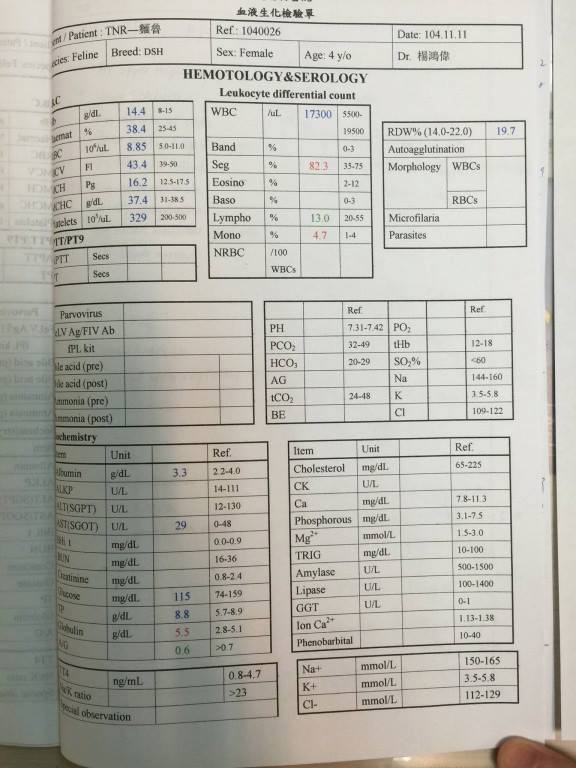 血液生化檢驗單
ent / Patient : TNR—麵魯 Ref.: 1040026 Date: 104.11.11
ecies: Feline Breed: DSH Sex: Female Age: 4 y/o Dr. 楊鴻偉
HEMOTOLOGY&SEROLOGY
Leukocyte differential count
g/dL 14.4 8-15
aemat % 38.4 25-45
BC 10⁶/uL 8.85 5.0-11.0
CV Fl 43.4 39-50
CH Pg 16.2 12.5-17.5
CHC g/dL 37.4 31-38.5
atelets 10³/uL 329 200-500
TT/PT9
PTT Secs
T Secs
WBC /uL 17300 5500-19500
Band % 0-3
Seg % 82.3 35-75
Eosino % 2-12
Baso % 0-3
Lympho % 13.0 20-55
Mono % 4.7 1-4
NRBC /100 WBCs
RDW% (14.0-22.0) 19.7
Autoagglutination
Morphology WBCs
RBCs
Microfilaria
Parasites
Parvovirus
eLV Ag/FIV Ab
fPL kit
ile acid (pre)
ile acid (post)
mmonia (pre)
mmonia (post)
Ref. Ref.
PH 7.31-7.42 PO₂
PCO₂ 32-49 tHb 12-18
HCO₃ 20-29 SO₂% <60
AG Na 144-160
tCO₂ 24-48 K 3.5-5.8
BE Cl 109-122
ochemistry
em Unit Ref.
lbumin g/dL 3.3 2.2-4.0
ALKP U/L 14-111
ALT(SGPT) U/L 12-130
AST(SGOT) U/L 29 0-48
Bili t mg/dL 0.0-0.9
BUN mg/dL 16-36
reatinine mg/dL 0.8-2.4
lucose mg/dL 115 74-159
TP g/dL 8.8 5.7-8.9
Globulin g/dL 5.5 2.8-5.1
A/G 0.6 >0.7
T4 ng/mL 0.8-4.7
a/K ratio >23
pecial observation
Item Unit Ref.
Cholesterol mg/dL 65-225
CK U/L
Ca mg/dL 7.8-11.3
Phosphorous mg/dL 3.1-7.5
Mg²⁺ mmol/L 1.5-3.0
TRIG mg/dL 10-100
Amylase U/L 500-1500
Lipase U/L 100-1400
GGT U/L 0-1
Ion Ca²⁺ 1.13-1.38
Phenobarbital 10-40
Na+ mmol/L 150-165
K+ mmol/L 3.5-5.8
Cl- mmol/L 112-129